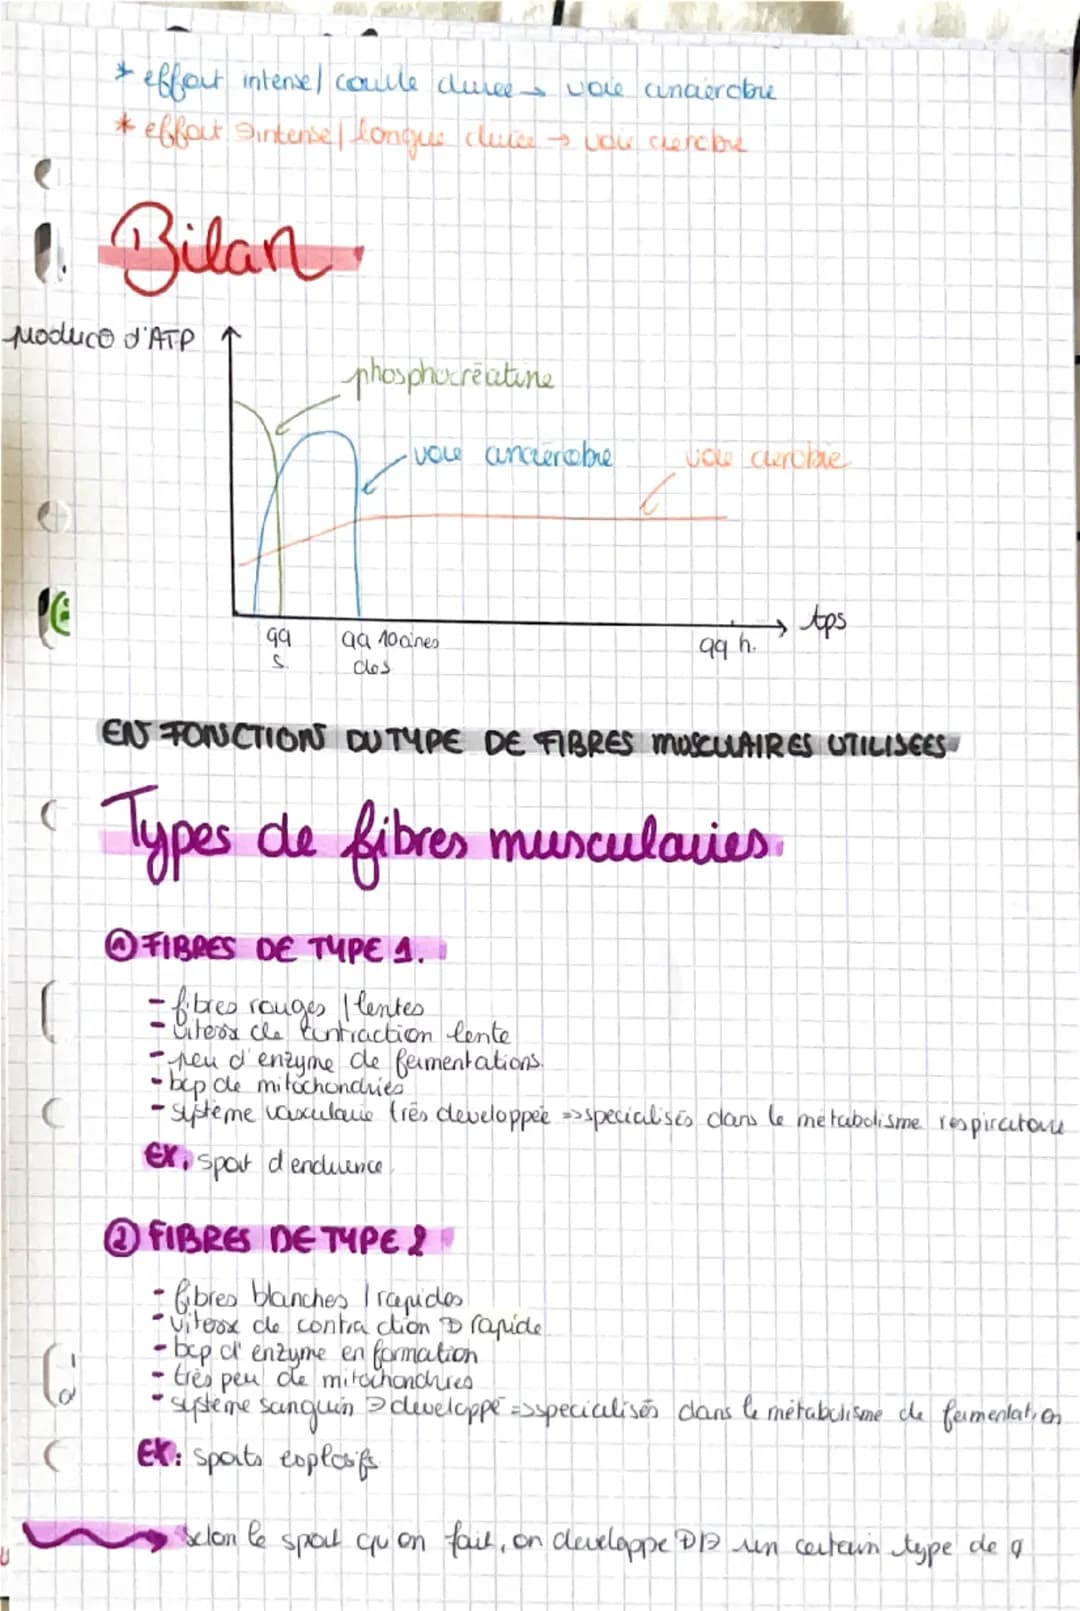 * effort intense / courte durée → voie anaérobie
* effort intense / longue durée → voie aérobie
Bilan
produco d'ATP
phosphocréatine
voie anaérobie
voie aérobie
tps
qq s.
qq 10aines des
qq h.
EN FONCTION DU TYPE DE FIBRES MUSCULAIRES UTILISEES
Types de fibres musculaires
① FIBRES DE TYPE 1.
- fibres rouges / lentes
- vitesse de contraction lente
- peu d'enzyme de fermentations.
- bcp de mitochondries
- système vasculaire très developpée => specialisés dans le métabolisme respiratoire
Ex, sport d'endurence.
② FIBRES DE TYPE 2
- fibres blanches / rapides
- vitesse de contraction rapide
- bcp d'enzyme en formation
- très peu de mitochondries
- système sanguin developpé => specialisés dans le métabolisme de fermentation
EX: sports explosifs
selon le sport qu'on fait, on developpe un certain type de